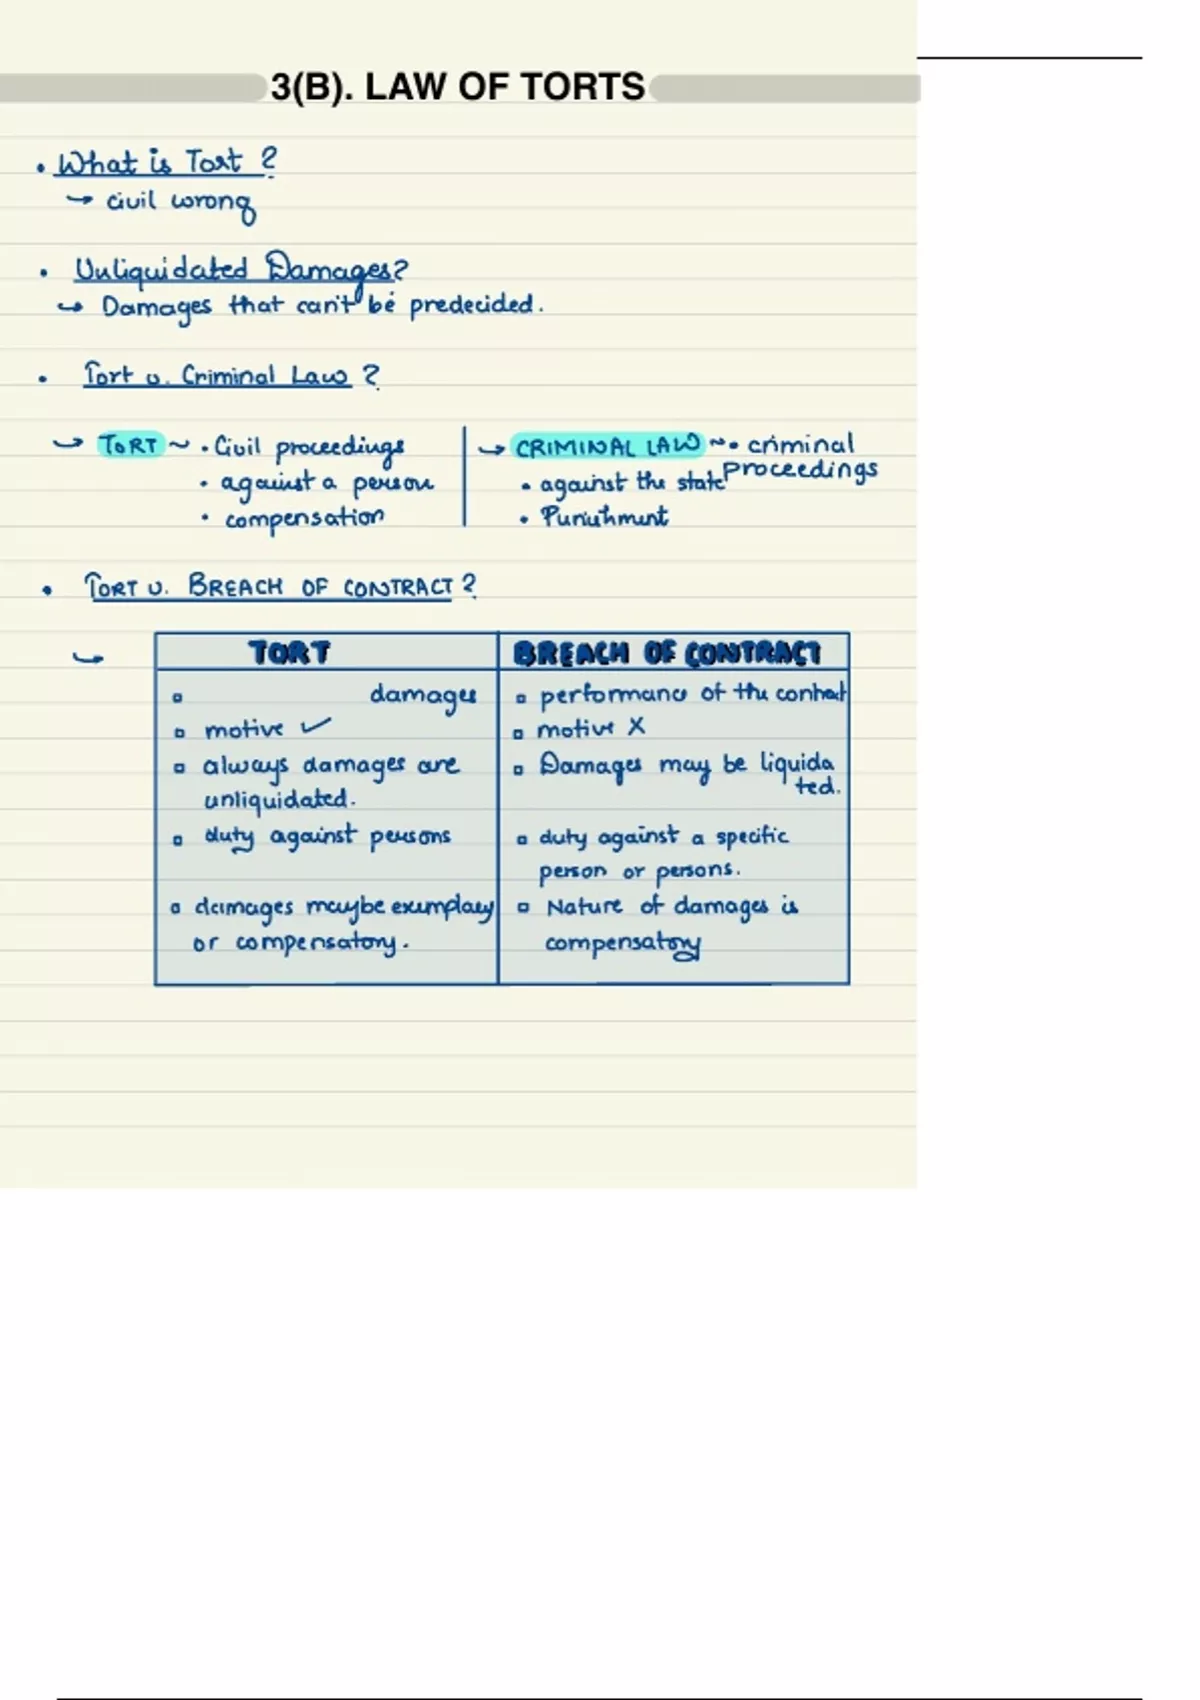 3(B). LAW OF TORTS
• What is Tort ?
↪ civil wrong
• Unliquidated Damages?
↪ Damages that can't be predecided.
• Tort v. Criminal Law ?
↪ TORT ~ • Civil proceedings
• against a person
• compensation
↪ CRIMINAL LAW ~ • criminal proceedings
• against the state
• Punishment
• TORT v. BREACH OF CONTRACT ?
↪ TORT
BREACH OF CONTRACT
▫ damages
▫ performance of the contract
▫ motive ✓
▫ motive X
▫ always damages are
unliquidated.
▫ Damages may be liquida
ted.
▫ duty against persons
▫ duty against a specific
person or persons.
▫ damages maybe exumplary
or compensatory.
▫ Nature of damages is
compensatory